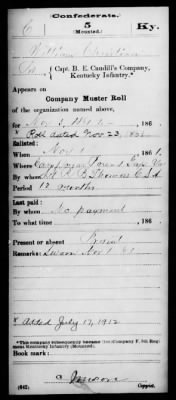 Confederate.
C 5 Ky.
(Mounted.)
William
Capt. B. E. Caudill's Company,
Kentucky Infantry.*
Appears on
Company Muster Roll
of the organization named above,
for Nov 2, 186
Roll dated Nov 23, 1861
Enlisted:
When Nov 1, 1861.
Where Camp near Pound Gap Va
By whom Thomas C.S.A
Period 12 months
Last paid:
By whom No payment
To what time , 186 .
Present or absent Present
Remarks: Sworn Nov 1 61
* Added July 17, 1912
*This company subsequently became Company F, 5th Regiment Kentucky Infantry (Mounted).
Book mark:
(642) Copyist.